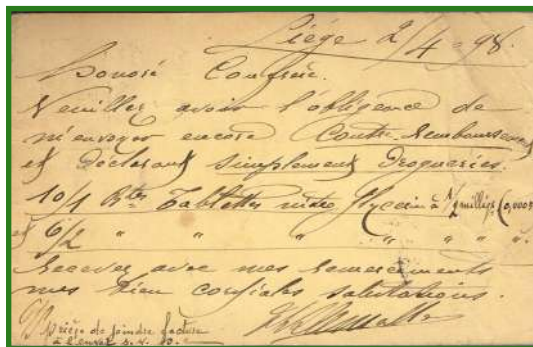 Liége 2/4-98.
Honoré Confrère.
Veuillez avoir l'obligeance de
m'envoyer encore Contre Remboursement
et déclarant simplement Drogueries.
10/1 Btes Tablettes nitro Glycerin à 1/2 millig (0,0005
et 6/2 " " " " " " ".
Recevez avec mes remerciements
mes bien cordiales salutations.
prière de joindre facture
à l'envoi s. v. p.